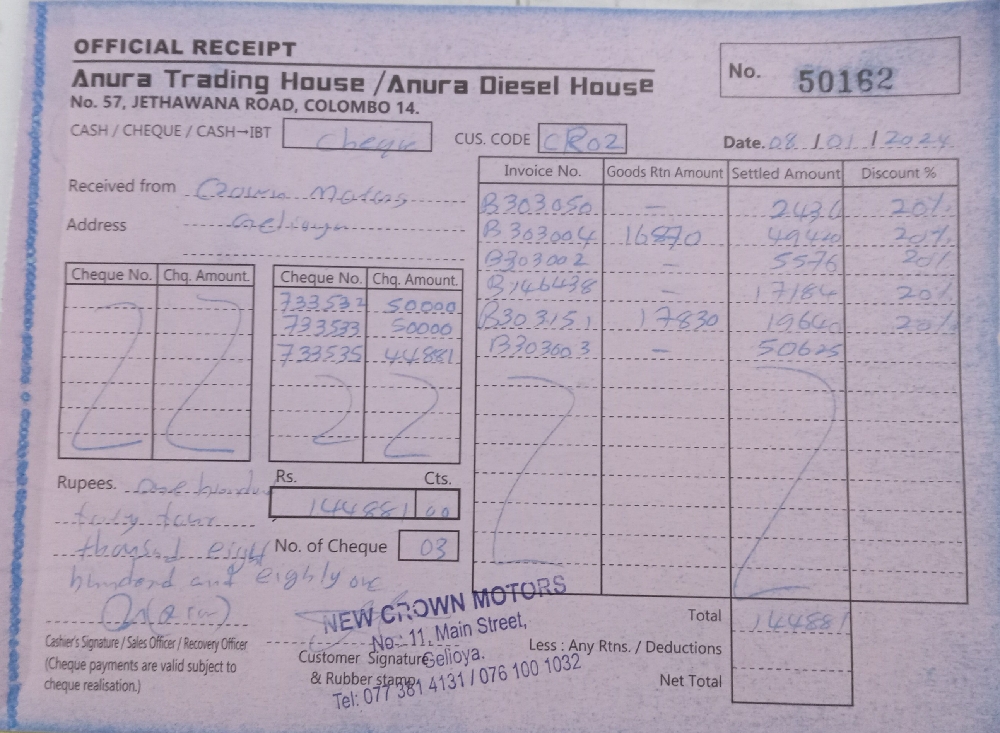 OFFICIAL RECEIPT
Anura Trading House / Anura Diesel House
No. 57, JETHAWANA ROAD, COLOMBO 14.
No. 50162
CASH / CHEQUE / CASH→IBT cheque CUS. CODE CR02 Date. 08 / 01 / 2024
Received from Crown Motors
Address Gelioya
Invoice No. Goods Rtn Amount Settled Amount Discount %
B303050 — 2436 20%
B303004 16870 49420 20%
B303002 — 5576 20%
B146438 — 17184 20%
B303151 17830 19640 20%
B303003 — 50625
Cheque No. Chq. Amount. Cheque No. Chq. Amount.
733532 50000
733533 50000
733535 44881
Rupees. one hundred
forty four
thousand eight
hundred and eighty one
Rs. Cts.
144881 00
No. of Cheque 03
Cashier's Signature / Sales Officer / Recovery Officer
(Cheque payments are valid subject to
cheque realisation.)
Customer Signature
& Rubber stamp
NEW CROWN MOTORS
No.: 11, Main Street,
Gelioya.
Tel: 077 381 4131 / 076 100 1032
Total 144881
Less : Any Rtns. / Deductions
Net Total